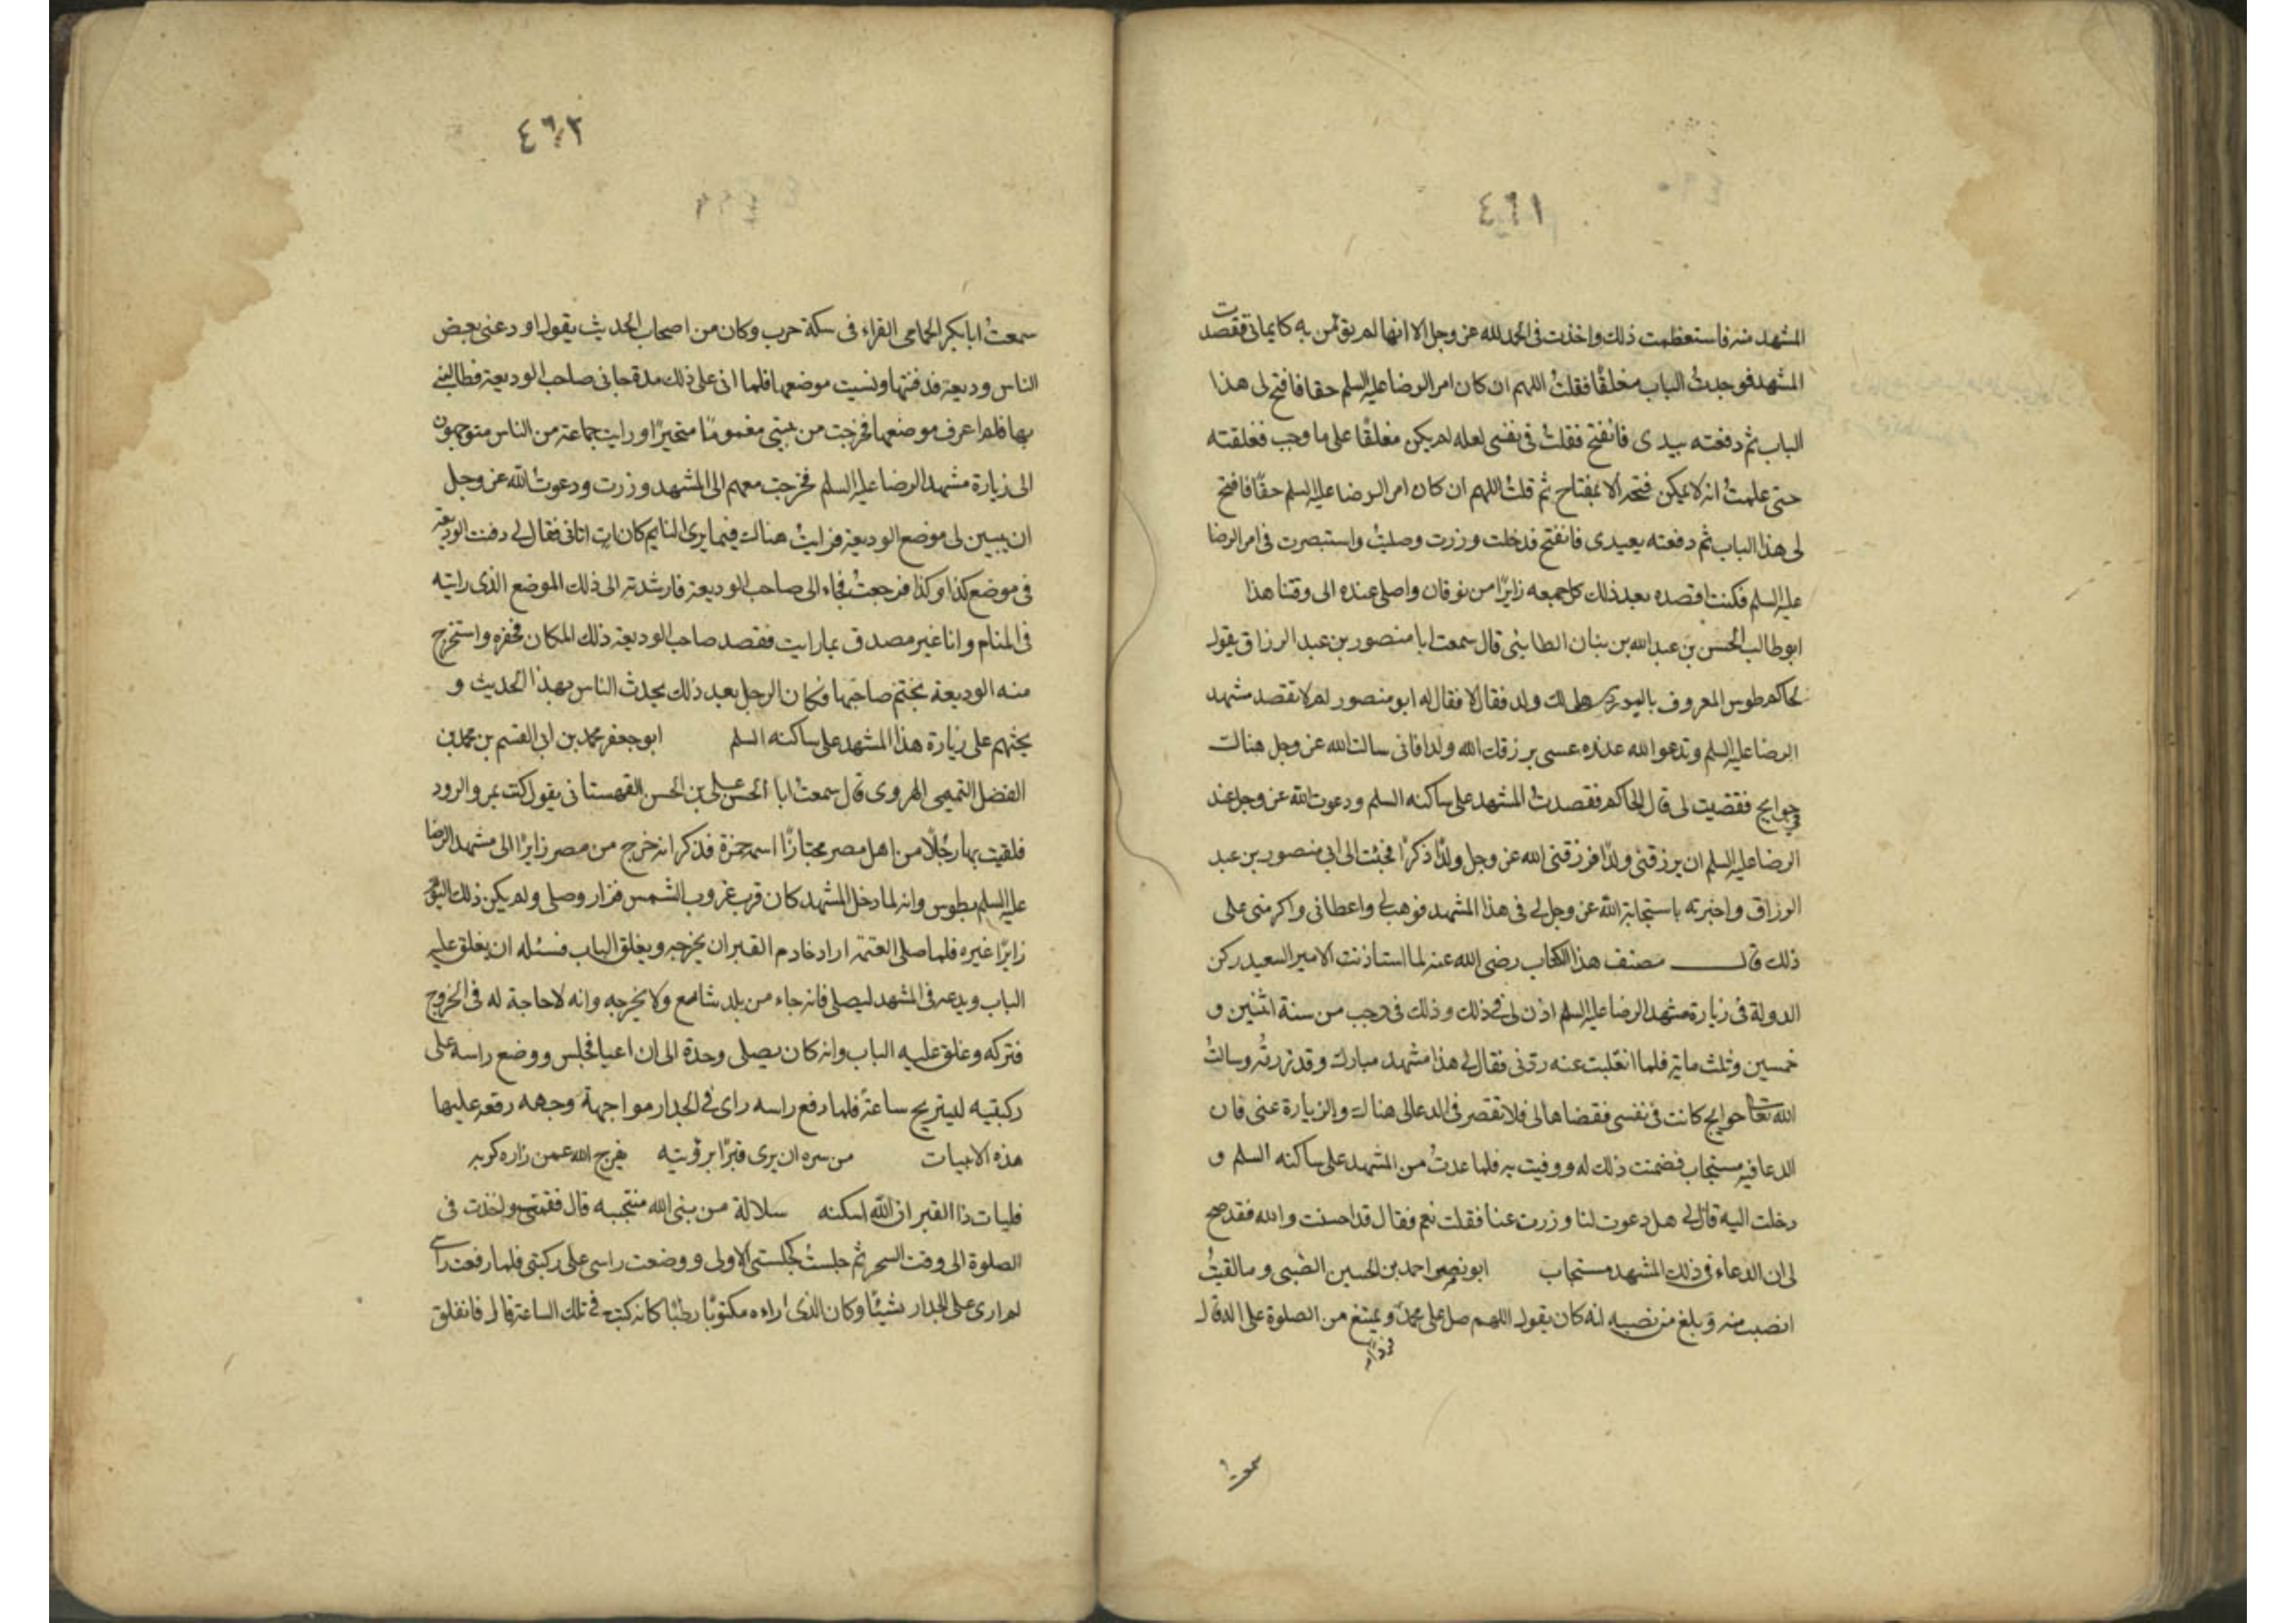 ٤٦١
المشهد منه فاستعظمت ذلك واخذت فى الحمد لله عز وجل الا انها لم يؤمن به كايمانى فقصدت
المشهد فوجدتُ الباب مغلقًا فقلتُ اللهم ان كان امر الرضا عليه السلم حقا فافتح لى هذا
الباب ثم دفعته بيدى فانفتح فقلتُ فى نفسى لعله لم يكن مغلقًا على ما وجب فغلقته
حتى علمتُ انه لا يمكن فتحه الا بمفتاح ثم قلتُ اللهم ان كان امر الرضا عليه السلم حقًا فافتح
لى هذا الباب ثم دفعته بعيدى فانفتح فدخلت وزرت وصليتُ واستبصرت فى امر الرضا
عليه السلم فكنت اقصده بعد ذلك كل جمعه زايرًا من نوقان واصلى عنده الى وقتنا هذا
ابو طالب الحسن بن عبد الله بن بنان الطايئى قال سمعت ابا منصور بن عبد الرزاق يقول
لحاكم طوس المعروف هل لك ولد فقال لا فقال له ابو منصور لم لا تقصد مشهد
الرضا عليه السلم وتدعو الله عنده عسى يرزقك الله ولدا فانى سالت الله عز وجل هنالك
حوايج فقضيت لى قال الحاكم فقصدتُ المشهد على ساكنه السلم ودعوت الله عز وجل عند
الرضا عليه السلم ان يرزقنى ولدًا فرزقنى الله عز وجل ولدًا ذكرًا فجئت الى ابى منصور بن عبد
الرزاق واخبرته باستجابة الله عز وجل لى فى هذا المشهد فوهب لى واعطانى واكرمنى على
ذلك قال مصنف هذا الكتاب رضى الله عنه لما استاذنت الامير السعيد ركن
الدولة فى زيارة مشهد الرضا عليه السلم اذن لى فى ذلك وذلك فى رجب من سنة اثنين و
خمسين وثلث ماية فلما انقلبت عنه ردنى فقال لى هذا مشهد مبارك وقد زرتُه وسالتُ
الله تعا حوايج كانت فى نفسى فقضاها لى فلا تقصر فى الدعا لى هناك والزيارة عنى فان
الدعا فيه مستجاب فضمنت ذلك له ووفيت به فلما عدتُ من المشهد على ساكنه السلم و
دخلت اليه قال لى هل دعوت لنا وزرت عنا فقلت نعم فقال قد احسنت والله فقد صح
لى ان الدعاء فى ذلك المشهد مستجاب ابو نصر احمد بن الحسين الضبى وما لقيتُ
انصب منه وبلغ من نصبه انه كان يقول اللهم صل على محمد ويمتنع من الصلوة على اله قال
فردا
سمعت
٤٦٢
سمعتُ ابا بكر الحمامى القراء فى سكة حرب وكان من اصحاب الحديث يقول اودعنى بعض
الناس وديعة فدفنتها ونسيت موضعها فلما اتى على ذلك مدة جانى صاحب الوديعة فطالبنى
بها فلم اعرف موضعها فخرجت من بيتى مغمومًا متحيرًا ورايت جماعة من الناس متوجهون
الى زيارة مشهد الرضا عليه السلم فخرجت معهم الى المشهد وزرت ودعوت الله عز وجل
ان يبين لى موضع الوديعة فرايتُ هناك فيما يرى النايم كان ات اتانى فقال لى دفنت الوديعة
فى موضع كذا وكذا فرجعتُ فجاء الى صاحب الوديعة فارشدته الى ذلك الموضع الذى رايته
فى المنام وانا غير مصدق بما رايت فقصد صاحب الوديعة ذلك المكان فحفره واستخرج
منه الوديعة بختم صاحبها فكان الرجل بعد ذلك يحدث الناس بهذا الحديث و
يحثهم على زيارة هذا المشهد على ساكنه السلم ابو جعفر محمد بن ابى القسم بن محمد بن
الفضل التميمى الهروى قال سمعتُ ابا الحسن على بن الحسن القهستانى يقول كنت بمرو الرود
فلقيت بها رجُلًا من اهل مصر مجتازًا اسمه حمزة فذكر انه خرج من مصر زايرًا الى مشهد الرضا
عليه السلم بطوس وانه لما دخل المشهد كان قرب غروب الشمس فزار وصلى ولم يكن ذلك اليوم
زايرًا غيره فلما صلى العتمة اراد خادم القبر ان يخرجه ويغلق الباب فسئله ان يغلق عليه
الباب ويدعه فى المشهد ليصلى فانه جاء من بلد شاسع ولا يخرجه وانه لا حاجة له فى الخروج
فتركه وغلق عليه الباب وانه كان يصلى وحدة الى ان اعيا فجلس ووضع راسه على
ركبتيه ليستريح ساعة فلما رفع راسه راى فى الجدار مواجهة وجهه رقعه عليها
هذه الابيات من سره ان يرى قبرًا برؤيته يفرج الله عمن زاره كربه
فليات ذا القبر ان الله اسكنه سلالة من نبى الله منتجبه قال فقمت واخذت فى
الصلوة الى وقت السحر ثم جلستُ كجلستى الاولى ووضعت راسى على ركبتى فلما رفعت راسى
لم ارى على الجدار شيئًا وكان الذى اراه مكتوبًا رطبًا كانه كتب فى تلك الساعة قال فانفلق